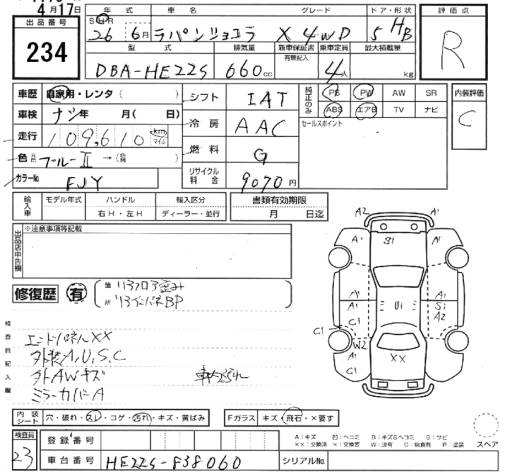 4月17日
出品番号 234
年式 車名 グレード ドア・形状 評価点
26年 6月 ラパンショコラ X 4WD 5 HB R
型式 排気量 新車保証書 有無記入 乗車定員 最大積載量
DBA-HE22S 660cc 4人 kg
車歴 自家用・レンタ( ) シフト IAT 純正のみ PS PW AW SR 内装評価
車検 ナシ年 月( 日) 冷房 AAC ABS エアB TV ナビ C
走行 109,610 km マイル 燃料 G セールスポイント
色 ブルーⅡ→( )
カラーNo FJY リサイクル料金 9070円
輸入車 モデル年式 ハンドル 輸入区分 書類有効期限
右H・左H ディーラー・並行 月 日迄
出品店申告欄 ※注意事項等記載
修復歴 有 箇所 リヌフロア歪み
リヤインパネBP
検査員記入欄
エンドパネルXX
外装A,U,S,C
外AWキズ
ミラーカバーA
A2 A1 A1 S1 A1 A1 A1 U1 S1 A2 C1 C1 W2 XX
内装シート 穴・破れ・スレ・コゲ・汚れ・キズ・黄ばみ Fガラス キズ・飛石・X要す
検査員 23 登録番号
A:キズ U:ヘコミ B:キズ&ヘコミ S:サビ
XX:交換済 X:要交換 W:波 C:腐食 P:塗装
スペア
車台番号 HE22S-838060 シリアルNo.